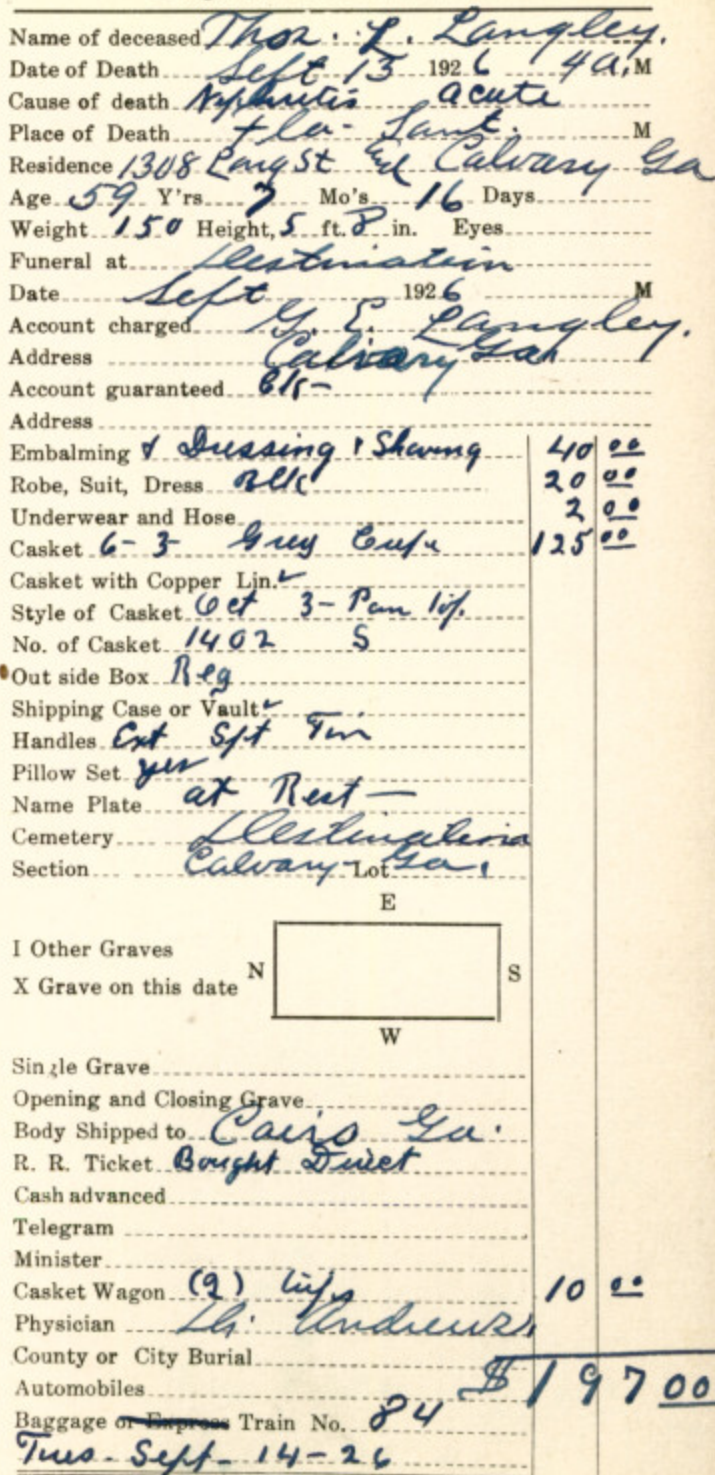 Name of deceased Thos. L. Langley.
Date of Death Sept 13 1926 4 a.M
Cause of death Nephritis acute
Place of Death Fla- Sant. M
Residence 1308 Long St and Calvary Ga
Age 59 Y'rs 7 Mo's 16 Days
Weight 150 Height, 5 ft. 8 in. Eyes
Funeral at Destination
Date Sept 1926 M
Account charged G. E. Langley.
Address Calvary Ga
Account guaranteed
Address
Embalming & Dressing & Shaving 40 00
Robe, Suit, Dress Blk 20 00
Underwear and Hose 2 00
Casket 6-3 Grey Crepe 125 00
Casket with Copper Lin.
Style of Casket Oct 3-Pan
No. of Casket 1402 S
Out side Box Reg
Shipping Case or Vault
Handles Ext Tin
Pillow Set yes
Name Plate at Rest —
Cemetery Destination
Section Calvary Lot Ga.
E
I Other Graves
N S
X Grave on this date
W
Single Grave
Opening and Closing Grave
Body Shipped to Cairo Ga.
R. R. Ticket Bought Direct
Cash advanced
Telegram
Minister
Casket Wagon (2) trips 10 00
Physician Dr. Andrews
County or City Burial
Automobiles $197 00
Baggage or Express Train No. 84
Tues. Sept-14-26